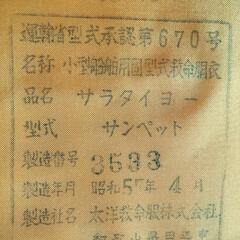 運輸省型式承認第670号
名称 小型船舶用固型式救命胴衣
品名 サラタイヨー
型式 サンペット
製造番号 3533
製造年月 昭和57年4月
製造社名 太洋救命服株式会社